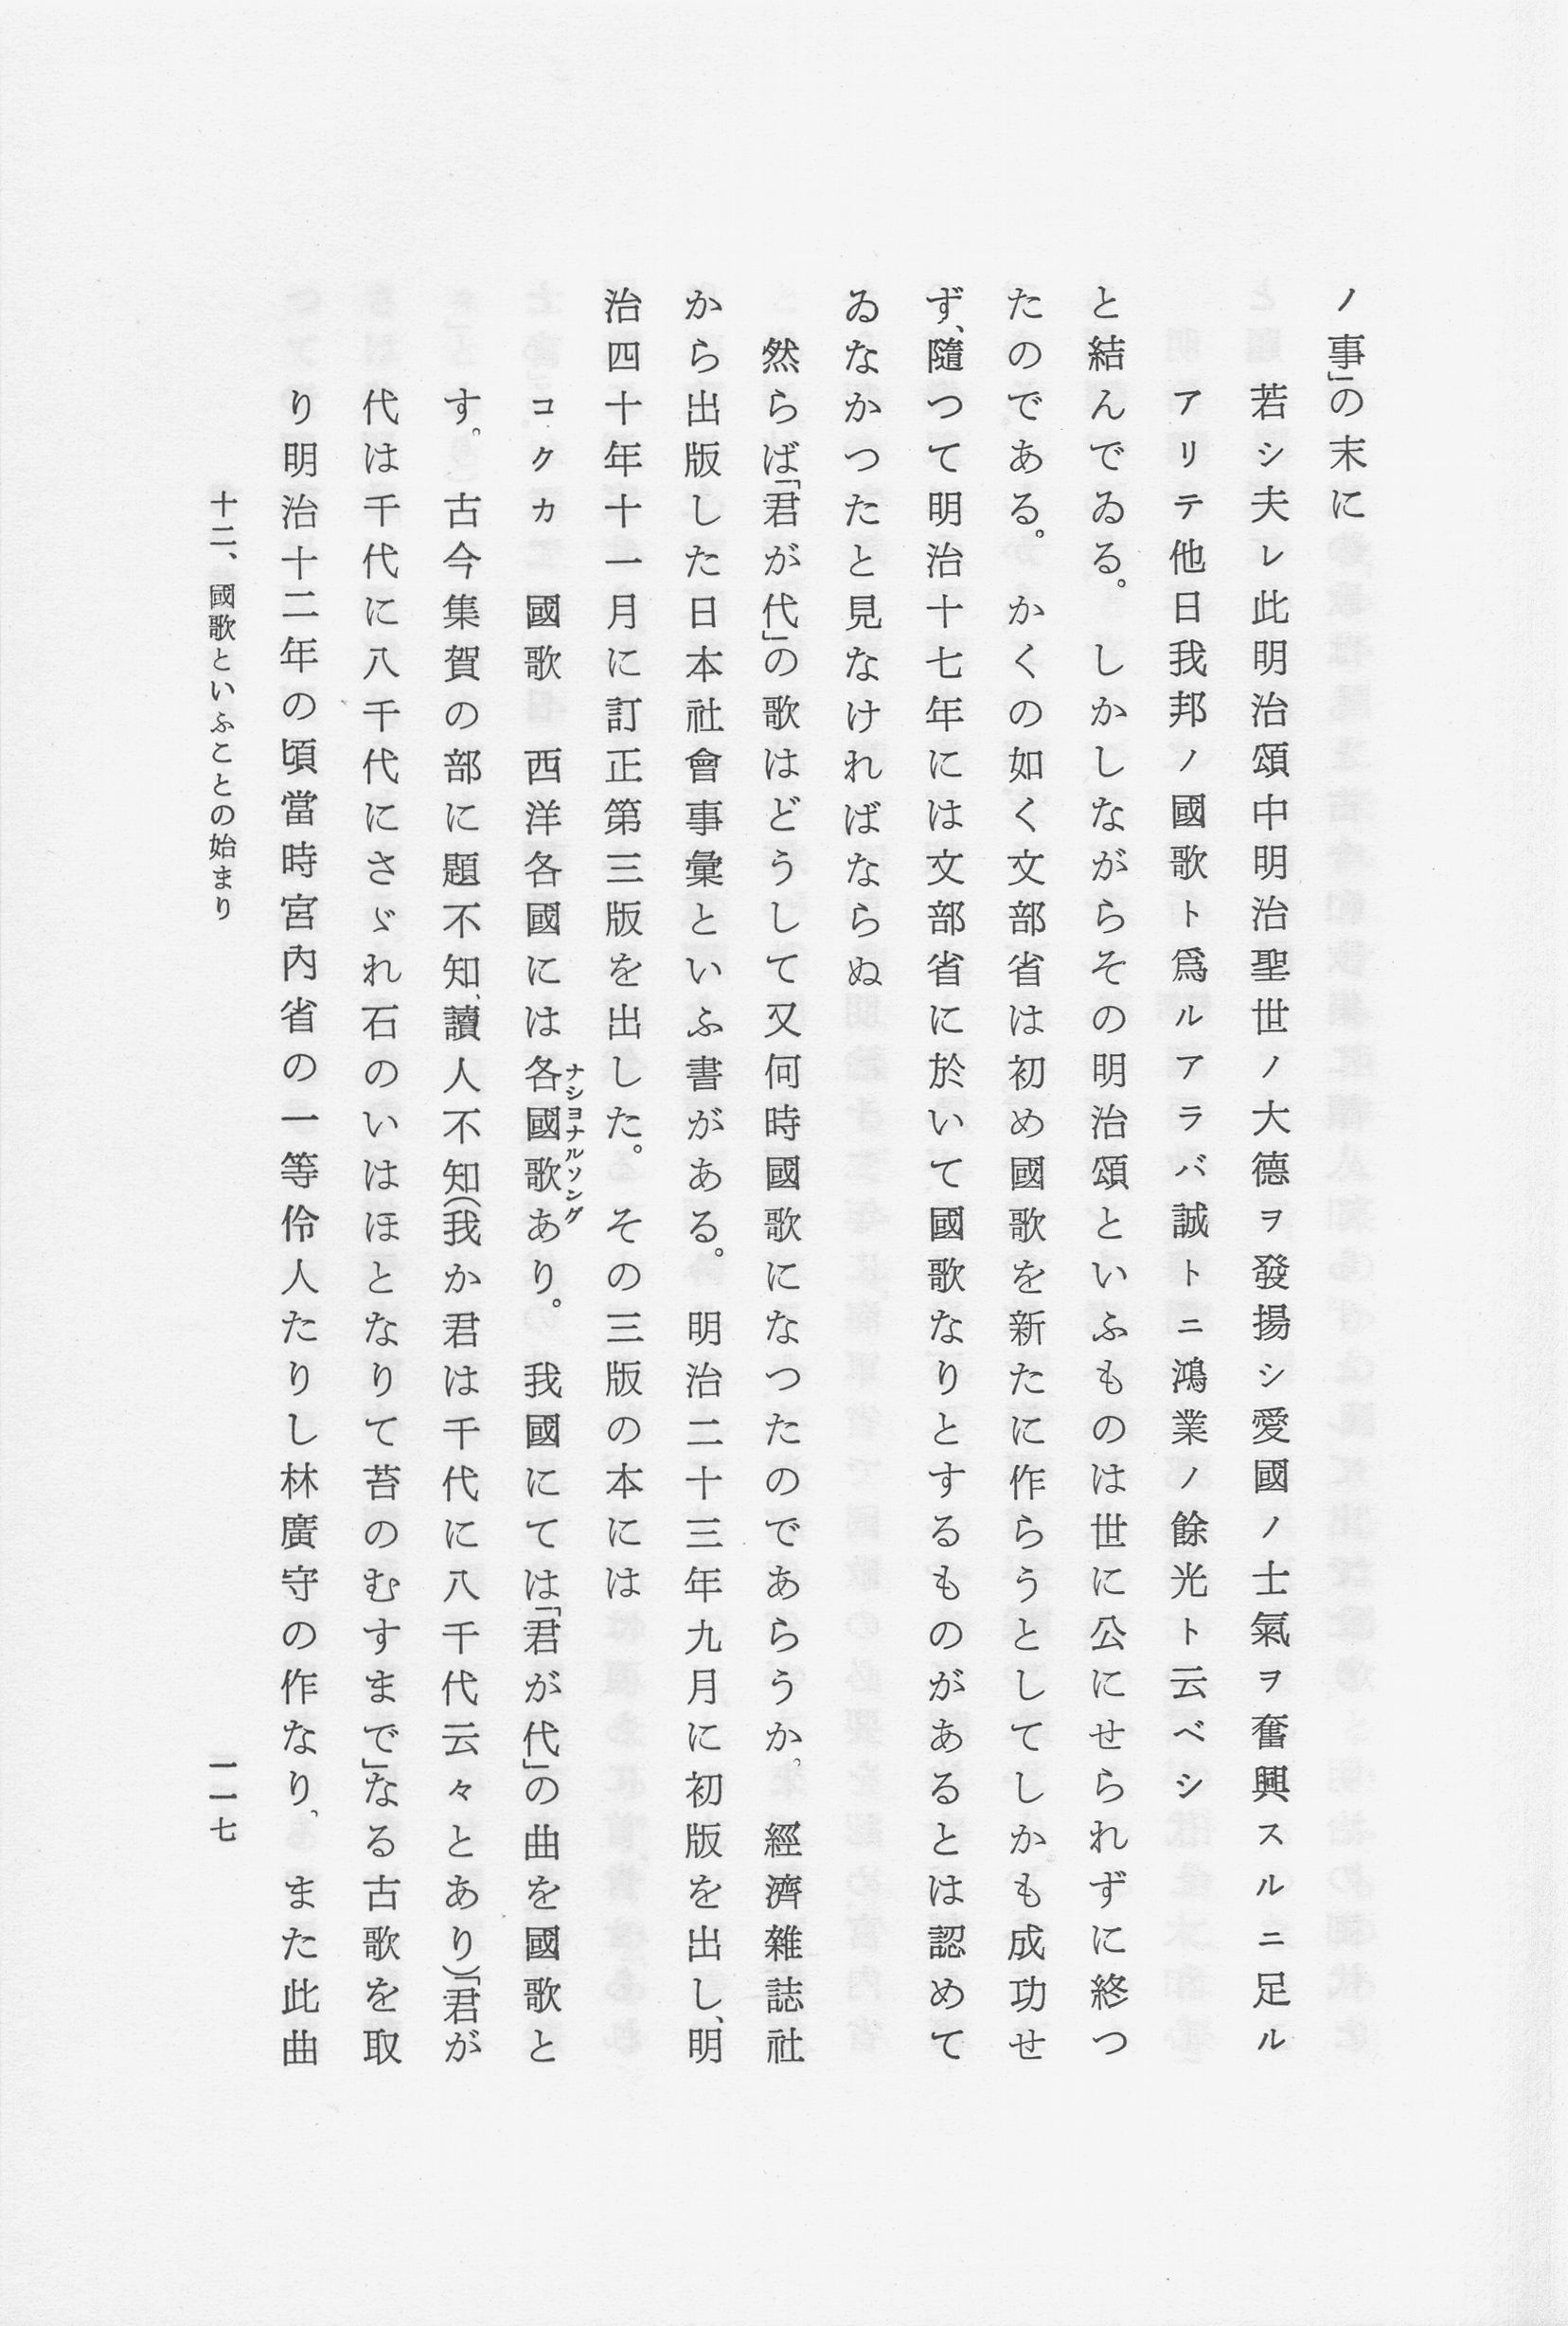 ノ事」の末に
若シ夫レ此明治頌中明治聖世ノ大德ヲ發揚シ愛國ノ士氣ヲ奮興スルニ足ル
アリテ他日我邦ノ國歌ト爲ルアラバ誠トニ鴻業ノ餘光ト云ベシ
と結んでゐる。しかしながらその明治頌といふものは世に公にせられずに終つ
たのである。かくの如く文部省は初め國歌を新たに作らうとしてしかも成功せ
ず、隨つて明治十七年には文部省に於いて國歌なりとするものがあるとは認めて
ゐなかつたと見なければならぬ
然らば「君が代」の歌はどうして又何時國歌になつたのであらうか。經濟雜誌社
から出版した日本社會事彙といふ書がある。明治二十三年九月に初版を出し、明
治四十年十一月に訂正第三版を出した。その三版の本には
コクカ　國歌　西洋各國には各國歌あり。我國にては「君が代」の曲を國歌と
ナショナルソング
す。古今集賀の部に題不知、讀人不知(我か君は千代に八千代云々とあり)「君が
代は千代に八千代にさゞれ石のいはほとなりて苔のむすまで」なる古歌を取
り明治十二年の頃當時宮內省の一等伶人たりし林廣守の作なり、また此曲
十二、國歌といふことの始まり
一一七